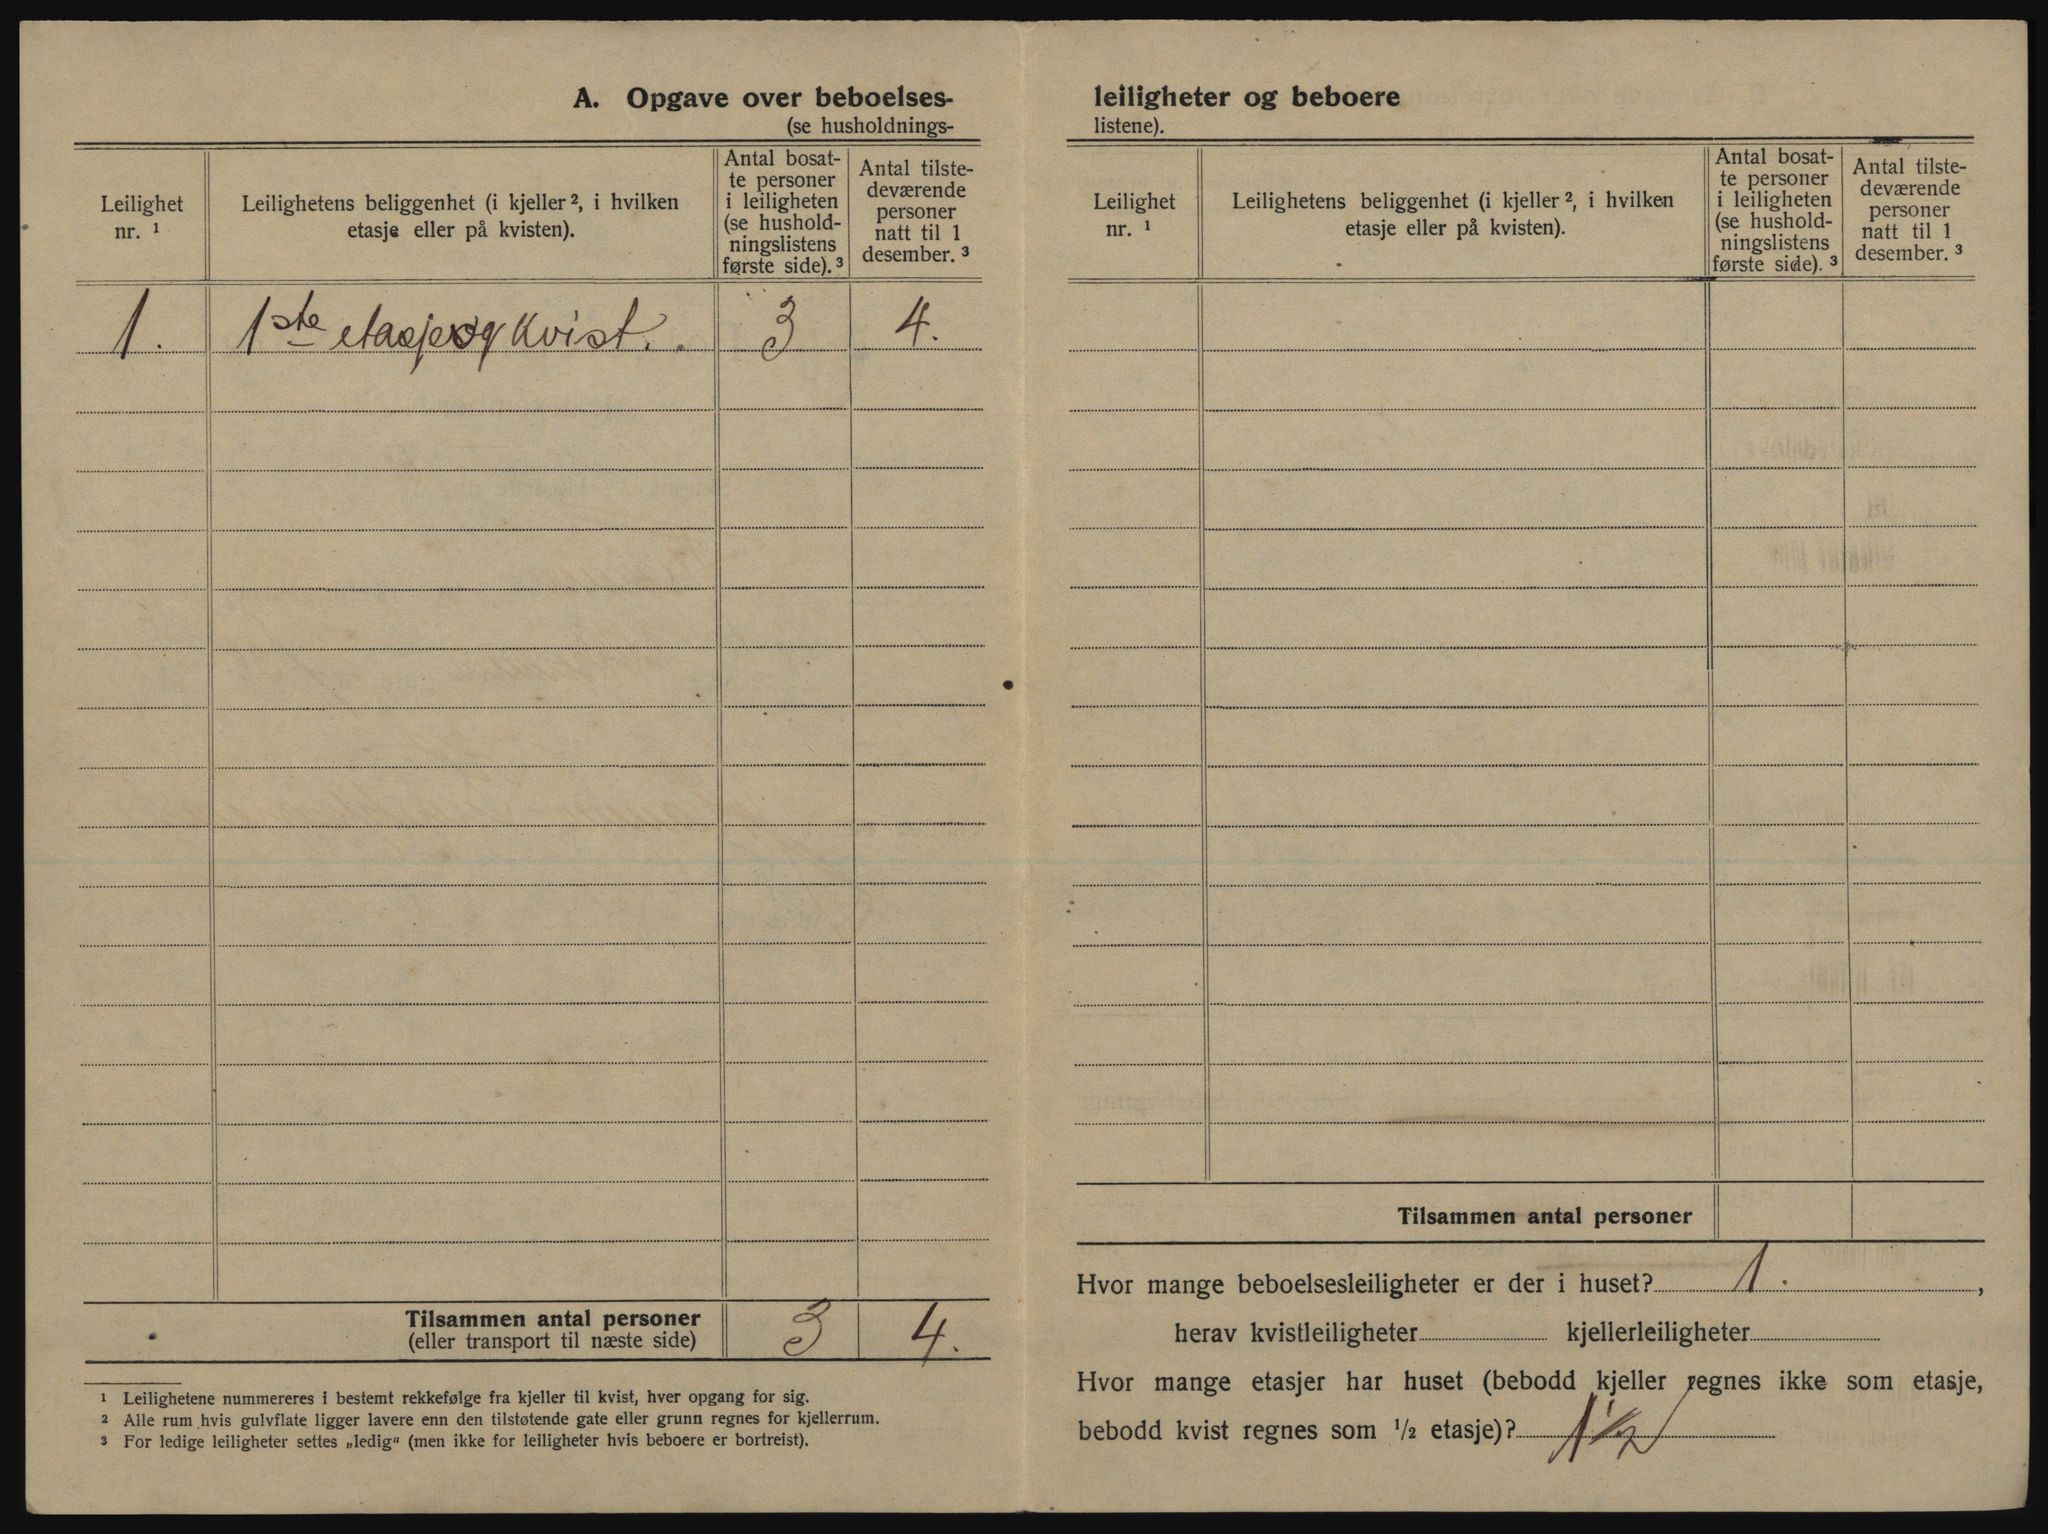 A. Opgave over beboelses-
(se husholdnings-
Leilighet
nr. ¹
Leilighetens beliggenhet (i kjeller ², i hvilken
etasje eller på kvisten).
Antal bosat-
te personer
i leiligheten
(se hushold-
ningslistens
første side). ³
Antal tilste-
deværende
personer
natt til 1
desember. ³
1. 1ste etasje og Kvist. 3 4.
Tilsammen antal personer 3 4.
(eller transport til næste side)
¹ Leilighetene nummereres i bestemt rekkefølge fra kjeller til kvist, hver opgang for sig.
² Alle rum hvis gulvflate ligger lavere enn den tilstøtende gate eller grunn regnes for kjellerrum.
³ For ledige leiligheter settes „ledig“ (men ikke for leiligheter hvis beboere er bortreist).
leiligheter og beboere
listene).
Leilighet
nr. ¹
Leilighetens beliggenhet (i kjeller ², i hvilken
etasje eller på kvisten).
Antal bosat-
te personer
i leiligheten
(se hushold-
ningslistens
første side). ³
Antal tilste-
deværende
personer
natt til 1
desember. ³
Tilsammen antal personer
Hvor mange beboelsesleiligheter er der i huset? 1. ,
herav kvistleiligheter kjellerleiligheter
Hvor mange etasjer har huset (bebodd kjeller regnes ikke som etasje,
bebodd kvist regnes som ½ etasje)? 1½